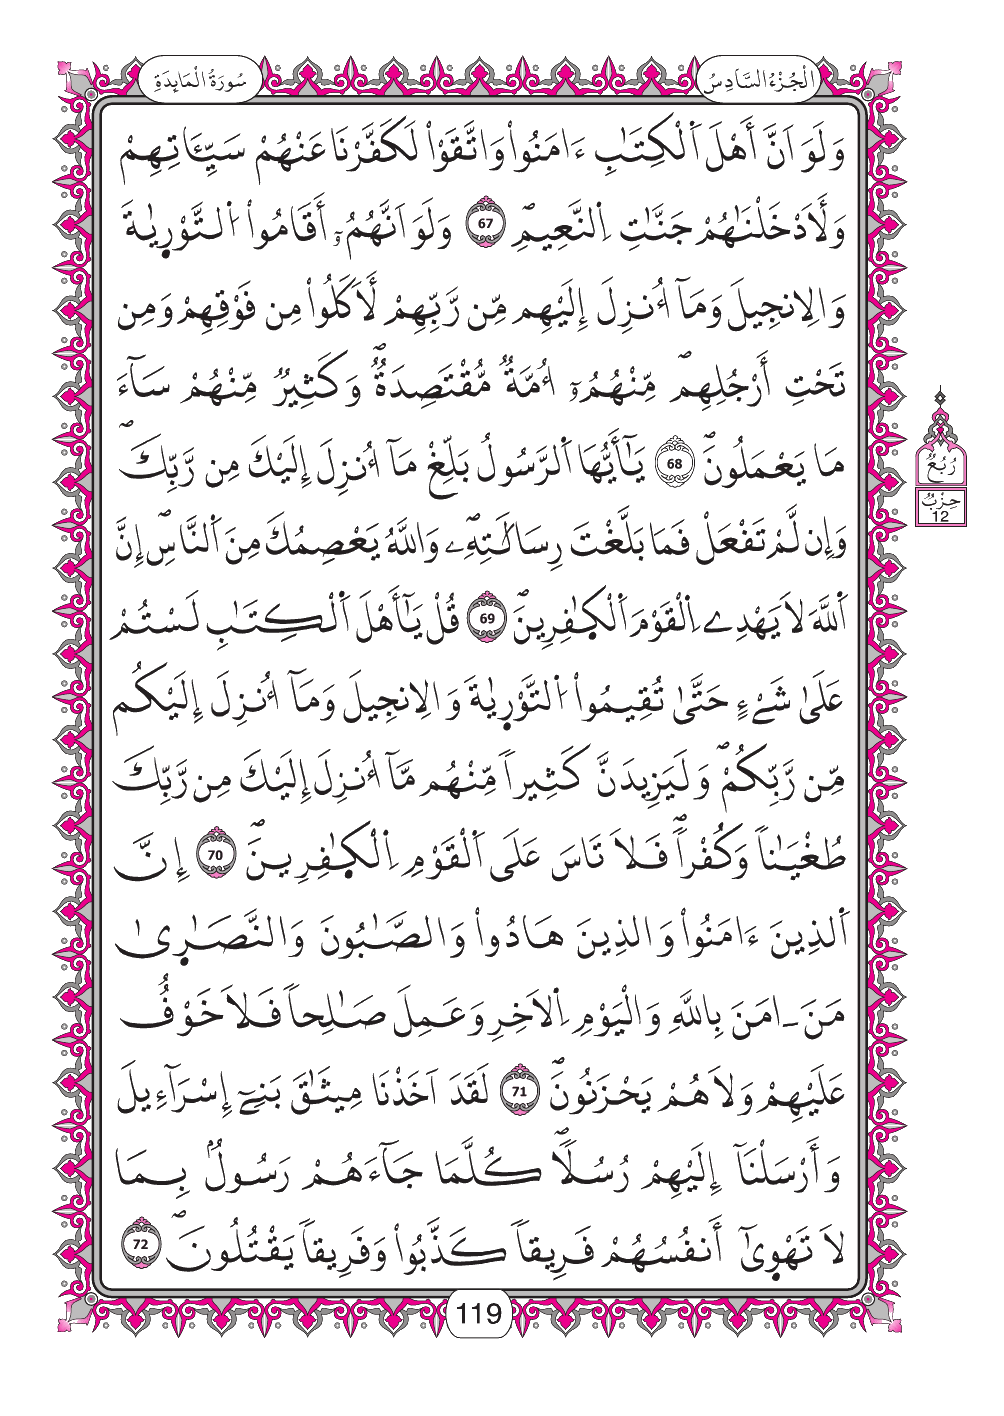 الْجُزْءُ السَّادِسُ
سُورَةُ الْمَائِدَةِ
وَلَوَ اَنَّ أَهْلَ اَ۬لْكِتَٰبِ ءَامَنُواْ وَاتَّقَوْاْ لَكَفَّرْنَا عَنْهُمْ سَيِّـَٔاتِهِمْ
وَلَأَدْخَلْنَٰهُمْ جَنَّٰتِ اِ۬لنَّعِيمِۖ 67 وَلَوَ اَنَّهُمُۥٓ أَقَامُواْ اُ۬لتَّوْر۪يٰةَ
وَالِانجِيلَ وَمَآ أُنزِلَ إِلَيْهِم مِّن رَّبِّهِمْ لَأَكَلُواْ مِن فَوْقِهِمْ وَمِن
تَحْتِ أَرْجُلِهِمۖ مِّنْهُمُۥٓ أُمَّةٞ مُّقْتَصِدَةٞۖ وَكَثِيرٞ مِّنْهُمْ سَآءَ
مَا يَعْمَلُونَۖ 68 يَٰٓأَيُّهَا اَ۬لرَّسُولُ بَلِّغْ مَآ أُنزِلَ إِلَيْكَ مِن رَّبِّكَۖ
وَإِن لَّمْ تَفْعَلْ فَمَا بَلَّغْتَ رِسَالَٰتِهِۦۖ وَاللَّهُ يَعْصِمُكَ مِنَ اَ۬لنَّاسِۖ إِنَّ
اَ۬للَّهَ لَا يَهْدِے اِ۬لْقَوْمَ اَ۬لْكٰ۪فِرِينَۖ 69 قُلْ يَٰٓأَهْلَ اَ۬لْكِتَٰبِ لَسْتُمْ
عَلَىٰ شَےْءٍ حَتَّىٰ تُقِيمُواْ اُ۬لتَّوْر۪يٰةَ وَالِانجِيلَ وَمَآ أُنزِلَ إِلَيْكُم
مِّن رَّبِّكُمْۖ وَلَيَزِيدَنَّ كَثِيراٗ مِّنْهُم مَّآ أُنزِلَ إِلَيْكَ مِن رَّبِّكَ
طُغْيَٰناٗ وَكُفْراٗۖ فَلَا تَاسَ عَلَى اَ۬لْقَوْمِ اِ۬لْكٰ۪فِرِينَۖ 70 إِنَّ
اَ۬لذِينَ ءَامَنُواْ وَالذِينَ هَادُواْ وَالصَّٰبُونَ وَالنَّصَٰر۪ىٰ
مَنَ ـ امَنَ بِاللَّهِ وَالْيَوْمِ اِ۬لَاخِرِ وَعَمِلَ صَٰلِحاٗ فَلَا خَوْفٌ
عَلَيْهِمْ وَلَا هُمْ يَحْزَنُونَۖ 71 لَقَدَ اَخَذْنَا مِيثَٰقَ بَنِےٓ إِسْرَآءِيلَ
وَأَرْسَلْنَآ إِلَيْهِمْ رُسُلاٗۖ كُلَّمَا جَآءَهُمْ رَسُولُۢ بِمَا
لَا تَهْو۪ىٰٓ أَنفُسُهُمْ فَرِيقاٗ كَذَّبُواْ وَفَرِيقاٗ يَقْتُلُونَۖ 72
رُبُعُ
حِزْبٌ
12
119